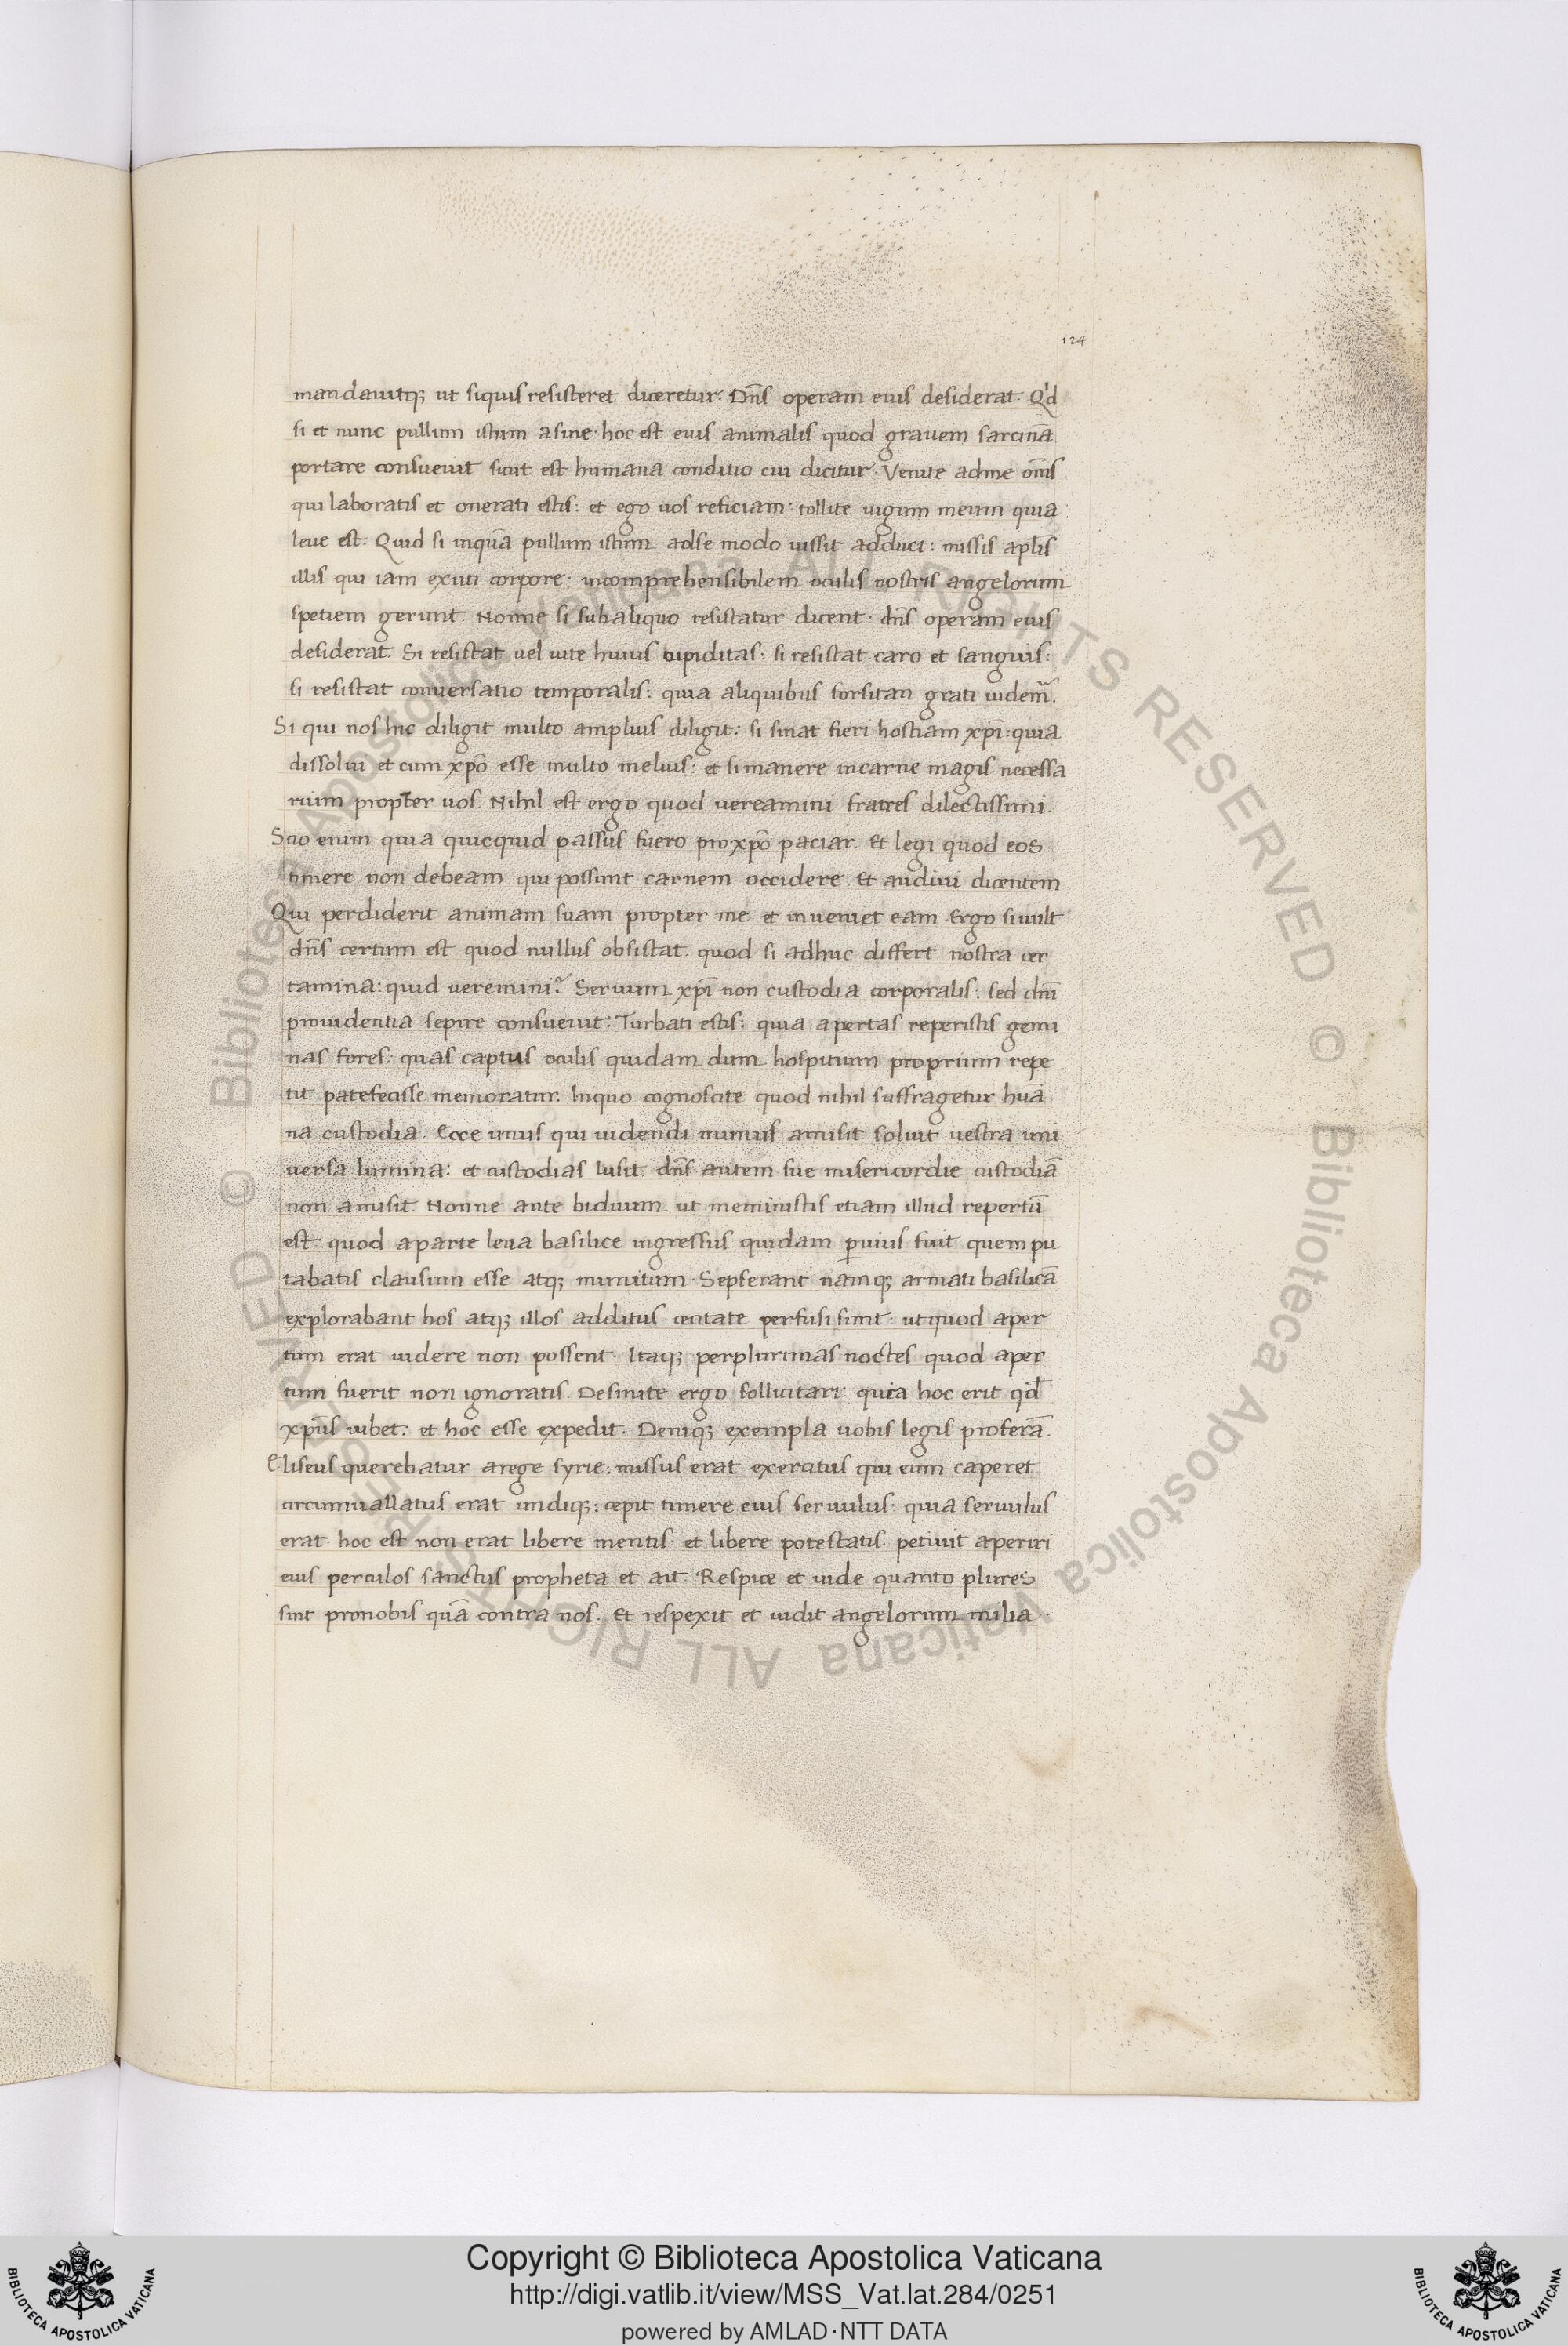 124
mandauitq; ut siquis resisteret diceretur. Dn̄s operam eius desiderat. Qd
si et nunc pullum istum asine· hoc est eius animalis quod grauem sarcinā
portare consueuit sicut est humana conditio cui dicitur. Venite adme om̄s
qui laboratis et onerati estis: et ego uos reficiam· tollite iugum meum quia
leue est. Quid si inquā pullum istum adse modo iussit adduci: missis apl̄is
illis qui iam exuti corpore· incomprehensibilem oculis nostris angelorum
spetiem gerunt. Nonne si subaliquo resistatur dicent· dn̄s operam eius
desiderat. Si resistat uel uite huius cupiditas: si resistat caro et sanguis:
si resistat conuersatio temporalis: quia aliquibus forsitan grati uidemr̄.
Si qui nos hic diligit multo amplius diligit: si sinat fieri hostiam xp̄i: quia
dissolui et cum xp̄o esse multo melius: et si manere incarne magis necessa
rium propter uos. Nihil est ergo quod uereamini fratres dilectissimi.
Scio enim quia quicquid passus fuero proxp̄o paciar. Et legi quod eos
timere non debeam qui possunt carnem occidere. Et audiui dicentem
Qui perdiderit animam suam propter me et inueniet eam. Ergo siuult
dn̄s certum est quod nullus obsistat. quod si adhuc differt nostra cer
tamina: quid ueremini? Seruum xp̄i non custodia corporalis: sed dn̄i
prouidentia sepire consueuit. Turbati estis: quia apertas reperistis gemi
nas fores: quas captus oculis quidam dum hospitium proprium repe
tit patefecisse memoratur. Inquo cognoscite quod nihil suffragetur huā
na custodia. Ecce unus qui uidendi munus amisit soluit uestra uni
uersa limina: et custodias lusit. dn̄s autem sue misericordie custodiā
non amisit. Nonne ante biduum ut meministis etiam illud repertū
est· quod aparte leua basilice ingressus quidam p̱uius fuit quem pu
tabatis clausum esse atq; munitum. Sepserant namq; armati basilicā
explorabant hos atq; illos additus cecitate perfusi sunt· ut quod aper
tum erat uidere non possent. Itaq; perplurimas noctes quod aper
tum fuerit non ignoratis. Desinite ergo sollicitari· quia hoc erit qd̄
xp̄us iubet: et hoc esse expedit. Deniq; exempla uobis legis proferā.
Eliseus querebatur arege syrie: missus erat exercitus qui eum caperet
circumuallatus erat undiq;: cepit timere eius seruulus· quia seruulus
erat hoc est non erat libere mentis· et libere potestatis. petiuit aperiri
eius perculos sanctus propheta et ait. Respice et uide quanto plures
sint pronobis quā contra nos. Et respexit et uidit angelorum milia.
© Biblioteca Apostolica Vaticana ALL RIGHTS RESERVED
© Biblioteca Apostolica Vaticana ALL RIGHTS RESERVED
Copyright © Biblioteca Apostolica Vaticana
http://digi.vatlib.it/view/MSS_Vat.lat.284/0251
powered by AMLAD·NTT DATA
BIBLIOTECA APOSTOLICA VATICANA
BIBLIOTECA APOSTOLICA VATICANA